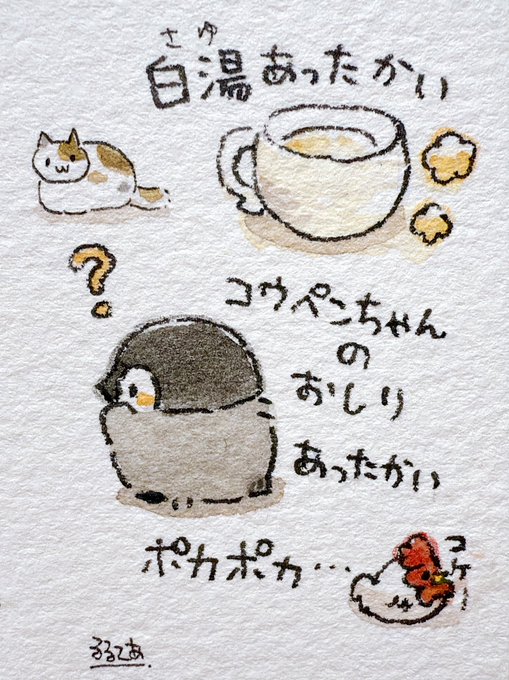 さゆ
白湯あったかい
?
コウペンちゃん
の
おしり
あったかい
ポカポカ…
コケー
るるてあ